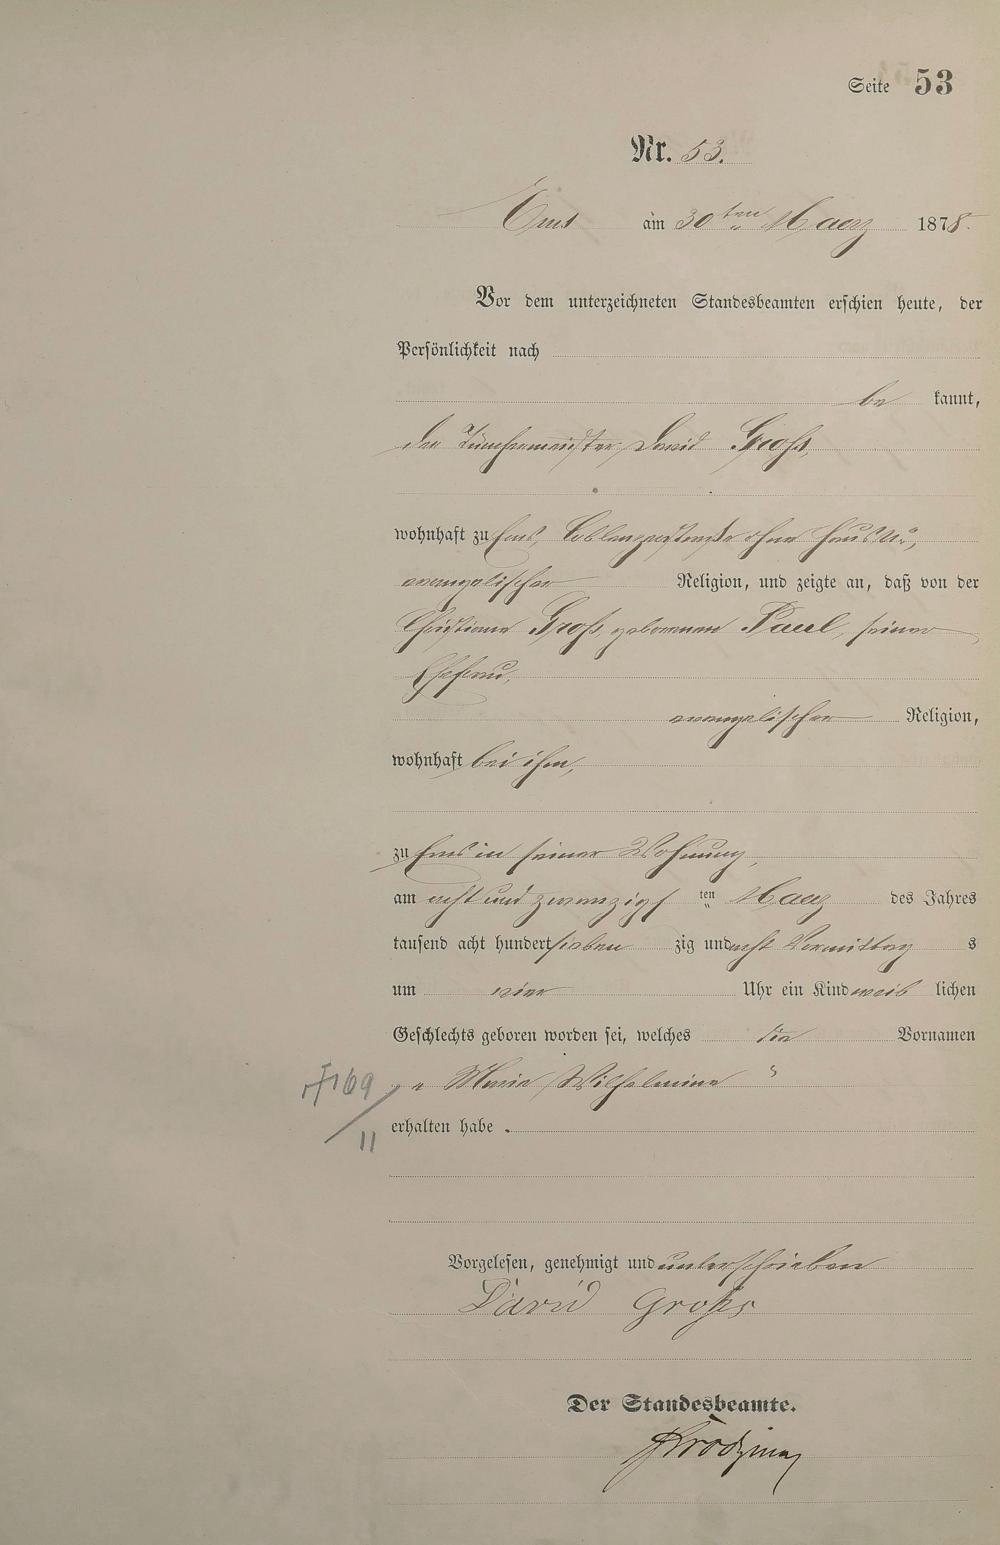 Seite 53
Nr. 53.
Ems am 30ten Maerz 1878.
Vor dem unterzeichneten Standesbeamten erschien heute, der
Persönlichkeit nach
be kannt,
der Tünchermeister David Groß,
wohnhaft zu Ems, Coblenzerstraße ohne Haus No,
evangelischer Religion, und zeigte an, daß von der
Christiane Groß, geborenen Paul, seiner
Ehefrau,
evangelischer Religion,
wohnhaft bei ihm,
zu Ems in seiner Wohnung,
am acht und zwanzigs ten Maerz des Jahres
tausend acht hundert sieben zig und acht Vormittag s
um vier Uhr ein Kind weib lichen
Geschlechts geboren worden sei, welches die Vornamen
" Marie Wilhelmine "
169
11
erhalten habe .
Vorgelesen, genehmigt und unterschrieben
David Groß
Der Standesbeamte.